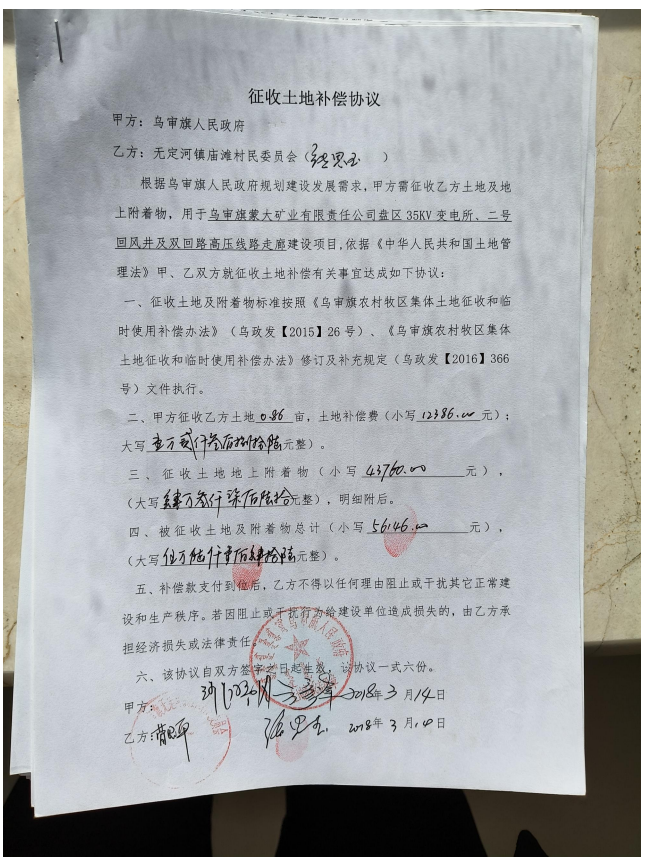 征收土地补偿协议
甲方：乌审旗人民政府
乙方：无定河镇庙滩村民委员会（张思玉）
根据乌审旗人民政府规划建设发展需求，甲方需征收乙方土地及地
上附着物，用于乌审旗蒙大矿业有限责任公司盘区35KV变电所、二号
回风井及双回路高压线路走廊建设项目,依据《中华人民共和国土地管
理法》甲、乙双方就征收土地补偿有关事宜达成如下协议：
一、征收土地及附着物标准按照《乌审旗农村牧区集体土地征收和临
时使用补偿办法》（乌政发【2015】26号）、《乌审旗农村牧区集体
土地征收和临时使用补偿办法》修订及补充规定（乌政发【2016】366
号）文件执行。
二、甲方征收乙方土地0.86亩，土地补偿费（小写12386.00元）；
大写壹万贰仟叁佰捌拾陆元整）。
三、征收土地地上附着物（小写43760.00元），
（大写肆万叁仟柒佰陆拾元整），明细附后。
四、被征收土地及附着物总计（小写56146.00元），
（大写伍万陆仟壹佰肆拾陆元整）。
五、补偿款支付到位后，乙方不得以任何理由阻止或干扰其它正常建
设和生产秩序。若因阻止或干扰行为给建设单位造成损失的，由乙方承
担经济损失或法律责任。
六、该协议自双方签字之日起生效，该协议一式六份。
甲方： 2018年3月14日
乙方： 张思玉 2018年3月14日